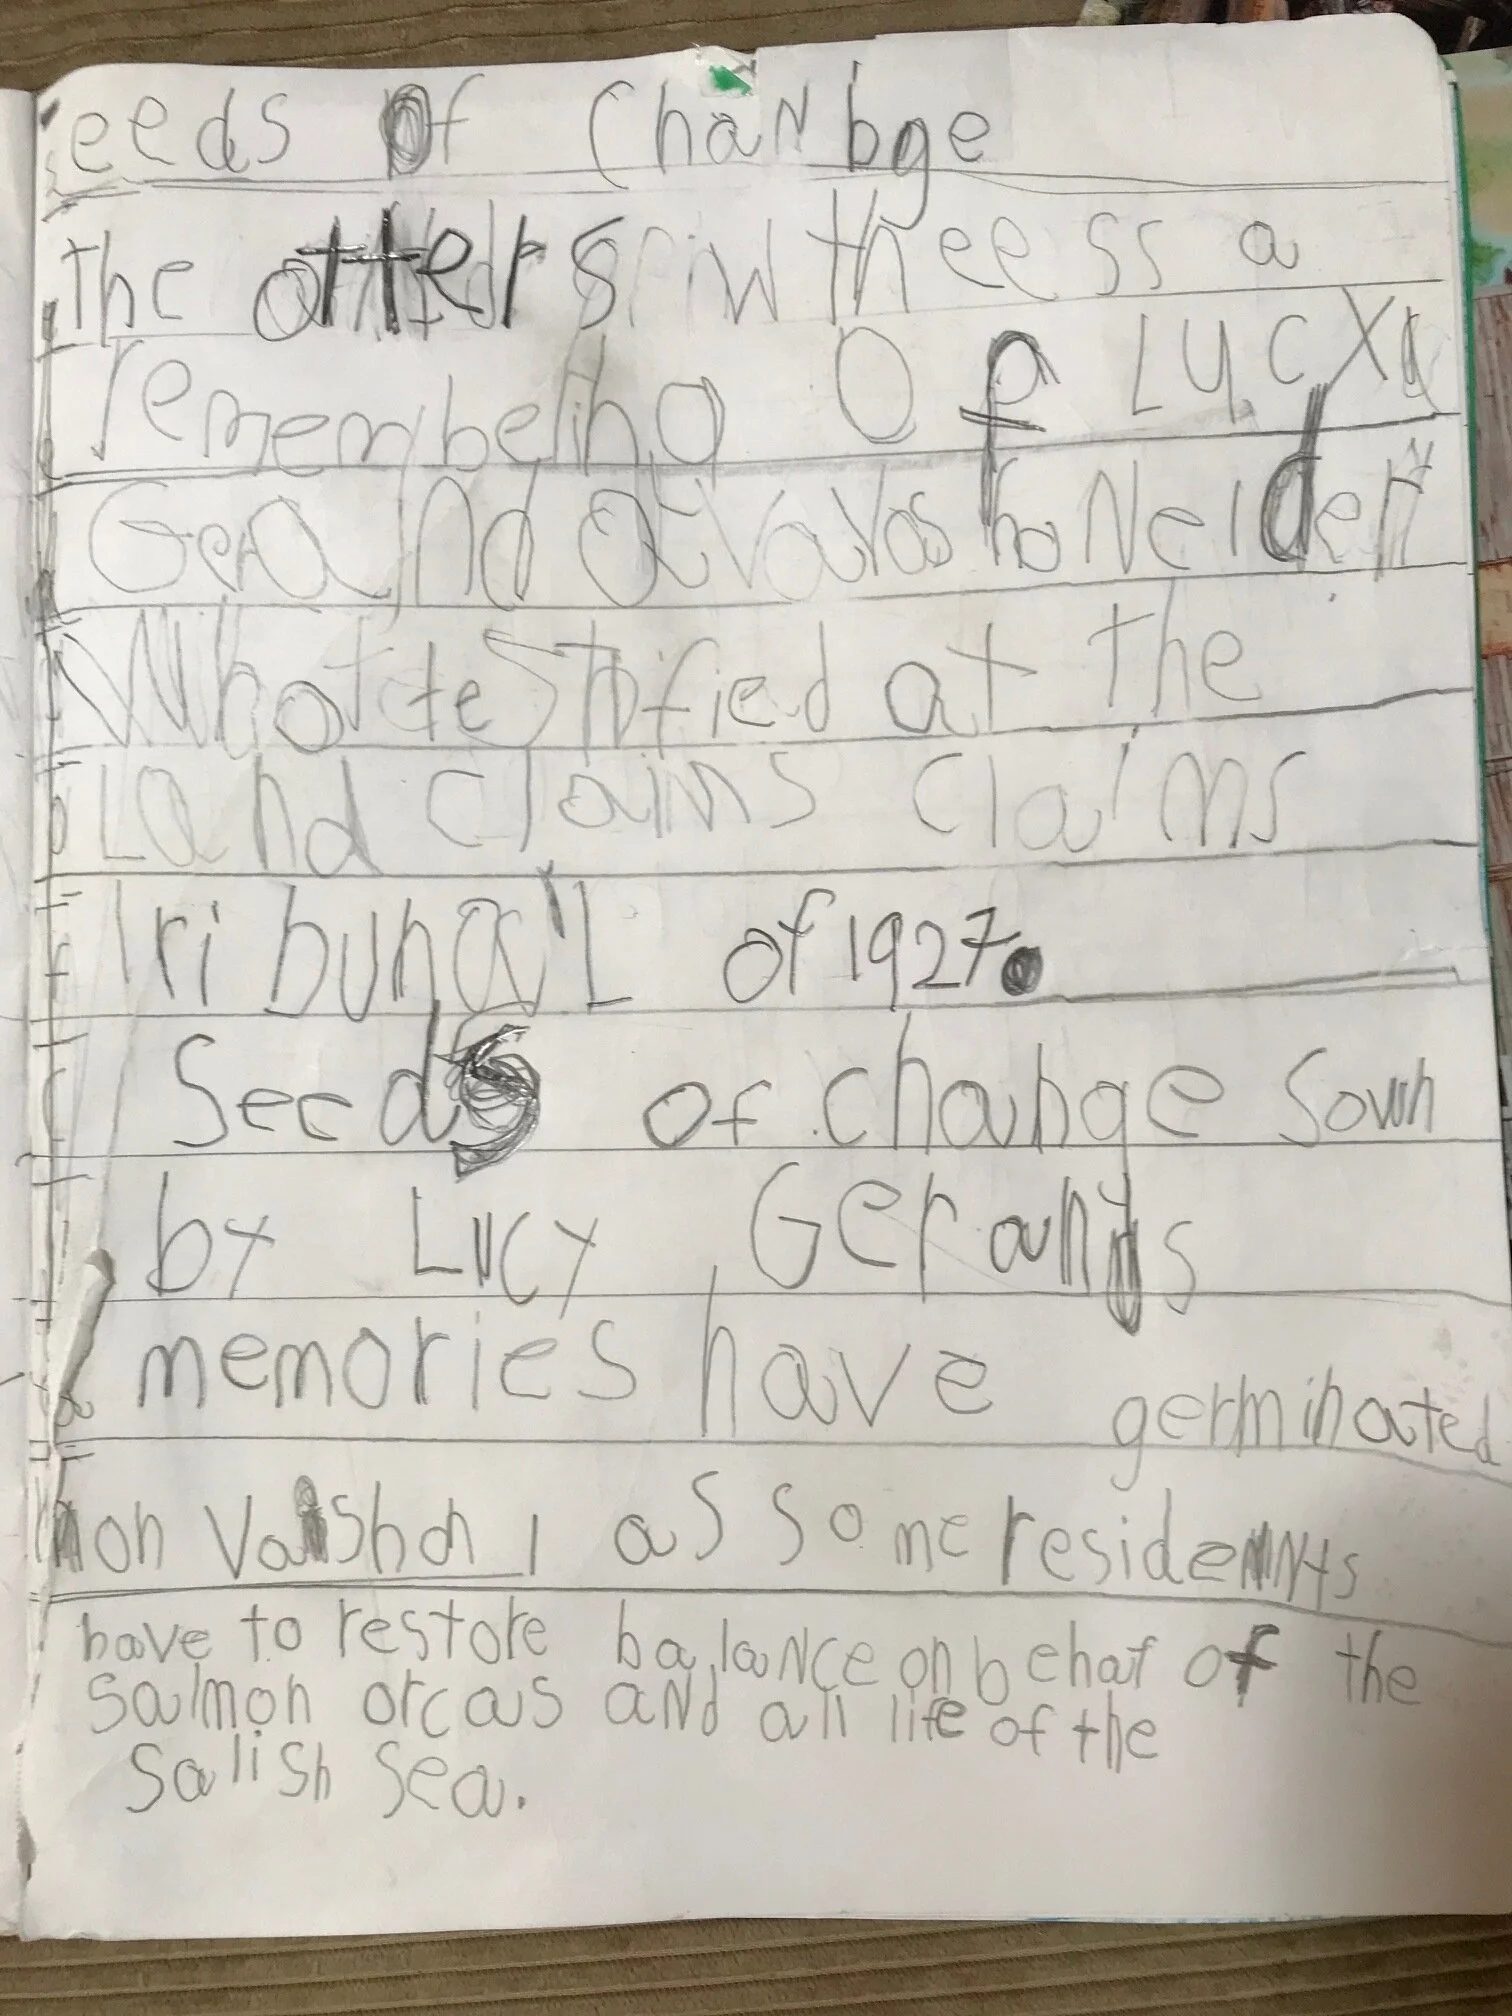 Seeds Of Chanbge
The otters witheess a
remembeing Of Lucy
Gerand a Vashon elder
Who testified at the
Land claims claims
Tribunal of 1927.
Seeds of change sown
by Lucy Gerands
memories have germinated
on Vashon, as some residents
have to restore balance on behaf of the
salmon orcas and all life of the
Salish Sea.